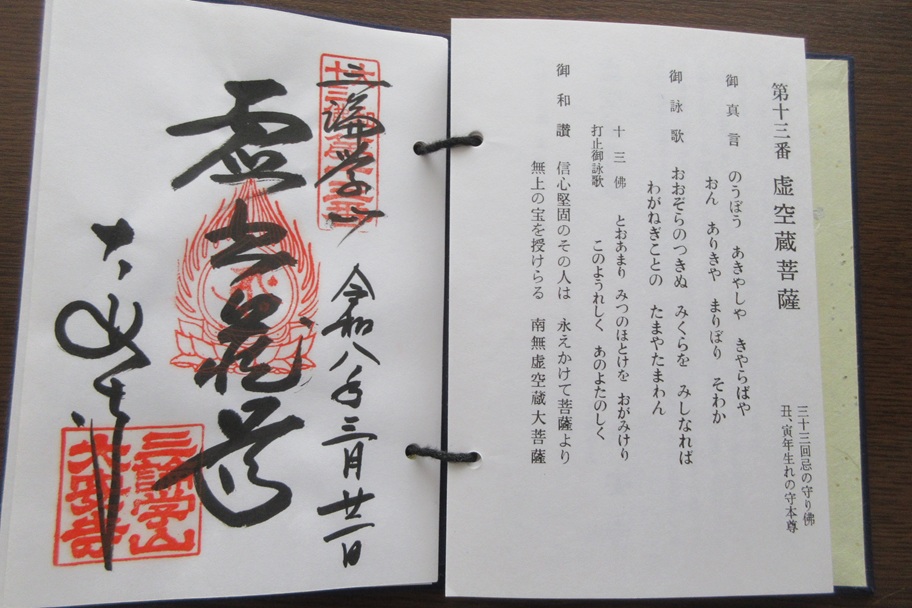 第十三番 虚空蔵菩薩
三十三回忌の守り佛
丑、寅年生れの守本尊
御真言 のうぼう あきやしや きやらばや
おん ありきや まりぼり そわか
御詠歌 おおぞらのつきぬ みくらを みしなれば
わがねぎごとの たまやたまわん
十三佛 とおあまり みつのほとけを おがみけり
打止御詠歌 このようれしく あのよたのしく
御和讃 信心堅固のその人は 永えかけて菩薩より
無上の宝を授けらる 南無虚空蔵大菩薩
三論学山
令和八年三月廿一日
虚空蔵尊
三論学山